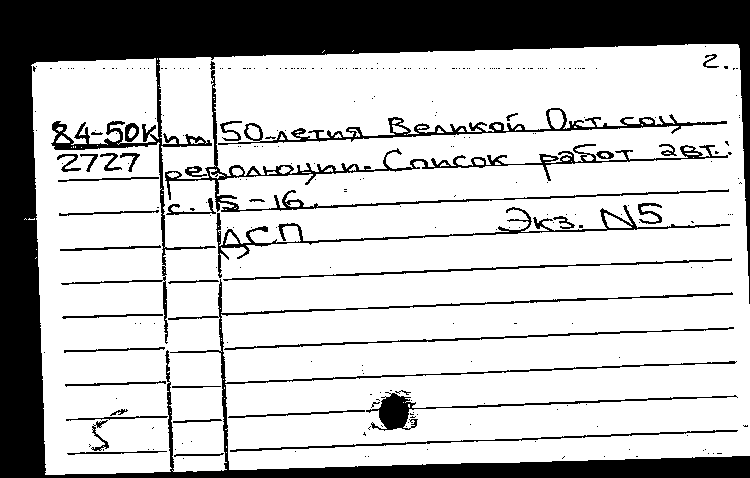 2.
84-50К п т. 50-летия Великой Окт. соц.
2727 революции. Список работ авт.:
с. 15-16.
ДСП Экз. N5.
5